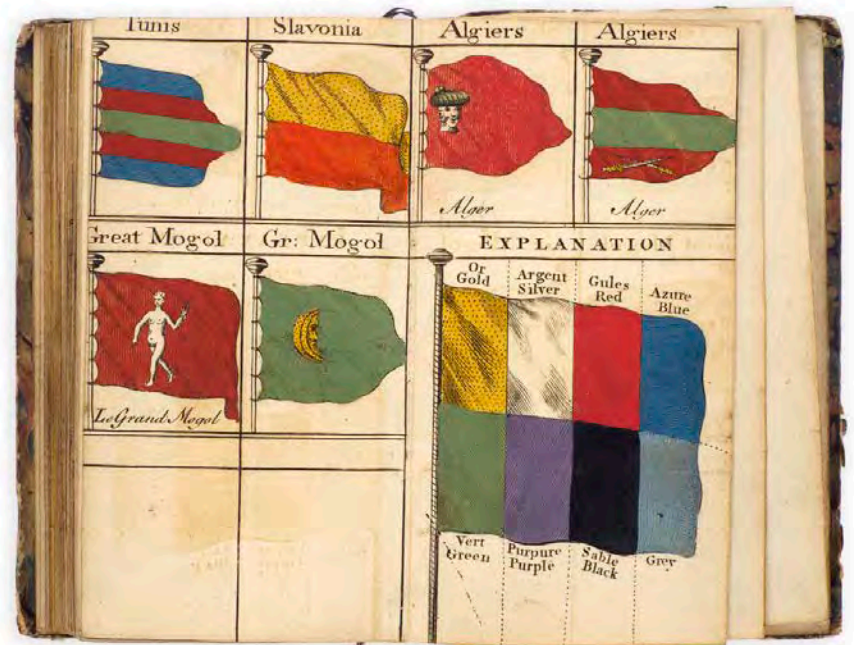 Tunis
Slavonia
Algiers
Algiers
Alger
Alger
Great Mogol
Gr: Mogol
Le Grand Mogol
EXPLANATION
Or
Gold
Argent
Silver
Gules
Red
Azure
Blue
Vert
Green
Purpure
Purple
Sable
Black
Grey